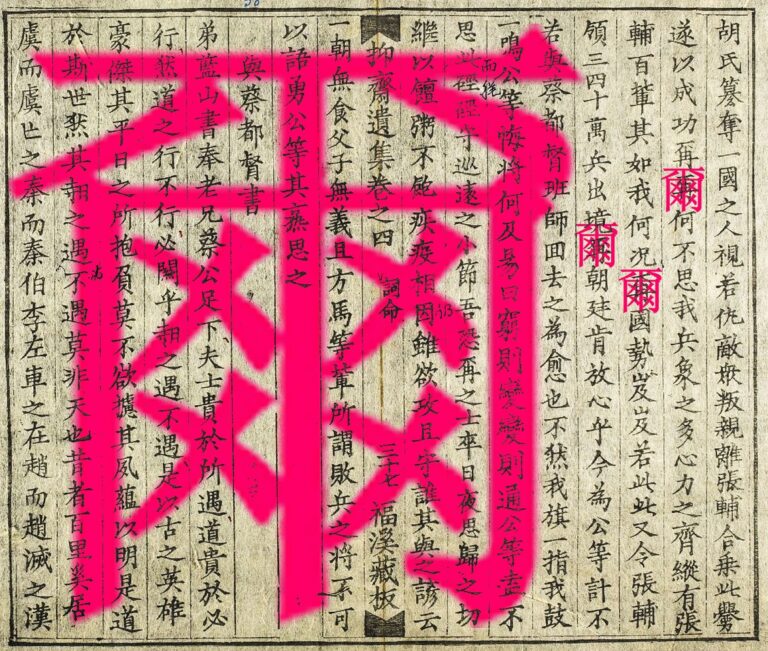 爾
胡氏篡奪一國之人視若仇敵衆叛親離張輔合乘此釁
遂以成功再爾何不思我兵衆之多心力之齊縱有張
輔百輩其如我何況爾國勢岌岌若此此又令張輔
領三四十萬兵出境爾朝廷肯放心乎今為公等計不
若與蔡都督班師回去之為愈也不然我旗一指我鼓
一鳴公等悔將何及易曰窮則變變則通公等盍不
思此硜硜守巡遠之小節吾恐再之士卒日夜思歸之切
繼以饘粥不飽疾疫相因雖欲攻且守誰其與之諺云
抑齋遺集卷之四 詞命 三十七 福溪藏板
一朝無食父子無義且方馬等輩所謂敗兵之將不可
以語勇公等其熟思之
與蔡都督書
弟藍山書奉老兄蔡公足下夫士貴於所遇道貴於必
行然道之行不行必關乎時之遇不遇是以古之英雄
豪傑其平日之所抱負莫不欲攄其夙蘊以明是道
於斯世然其時之遇不遇莫非天也昔者百里奚居
虞而虞亡之秦而秦伯李左車之在趙而趙滅之漢